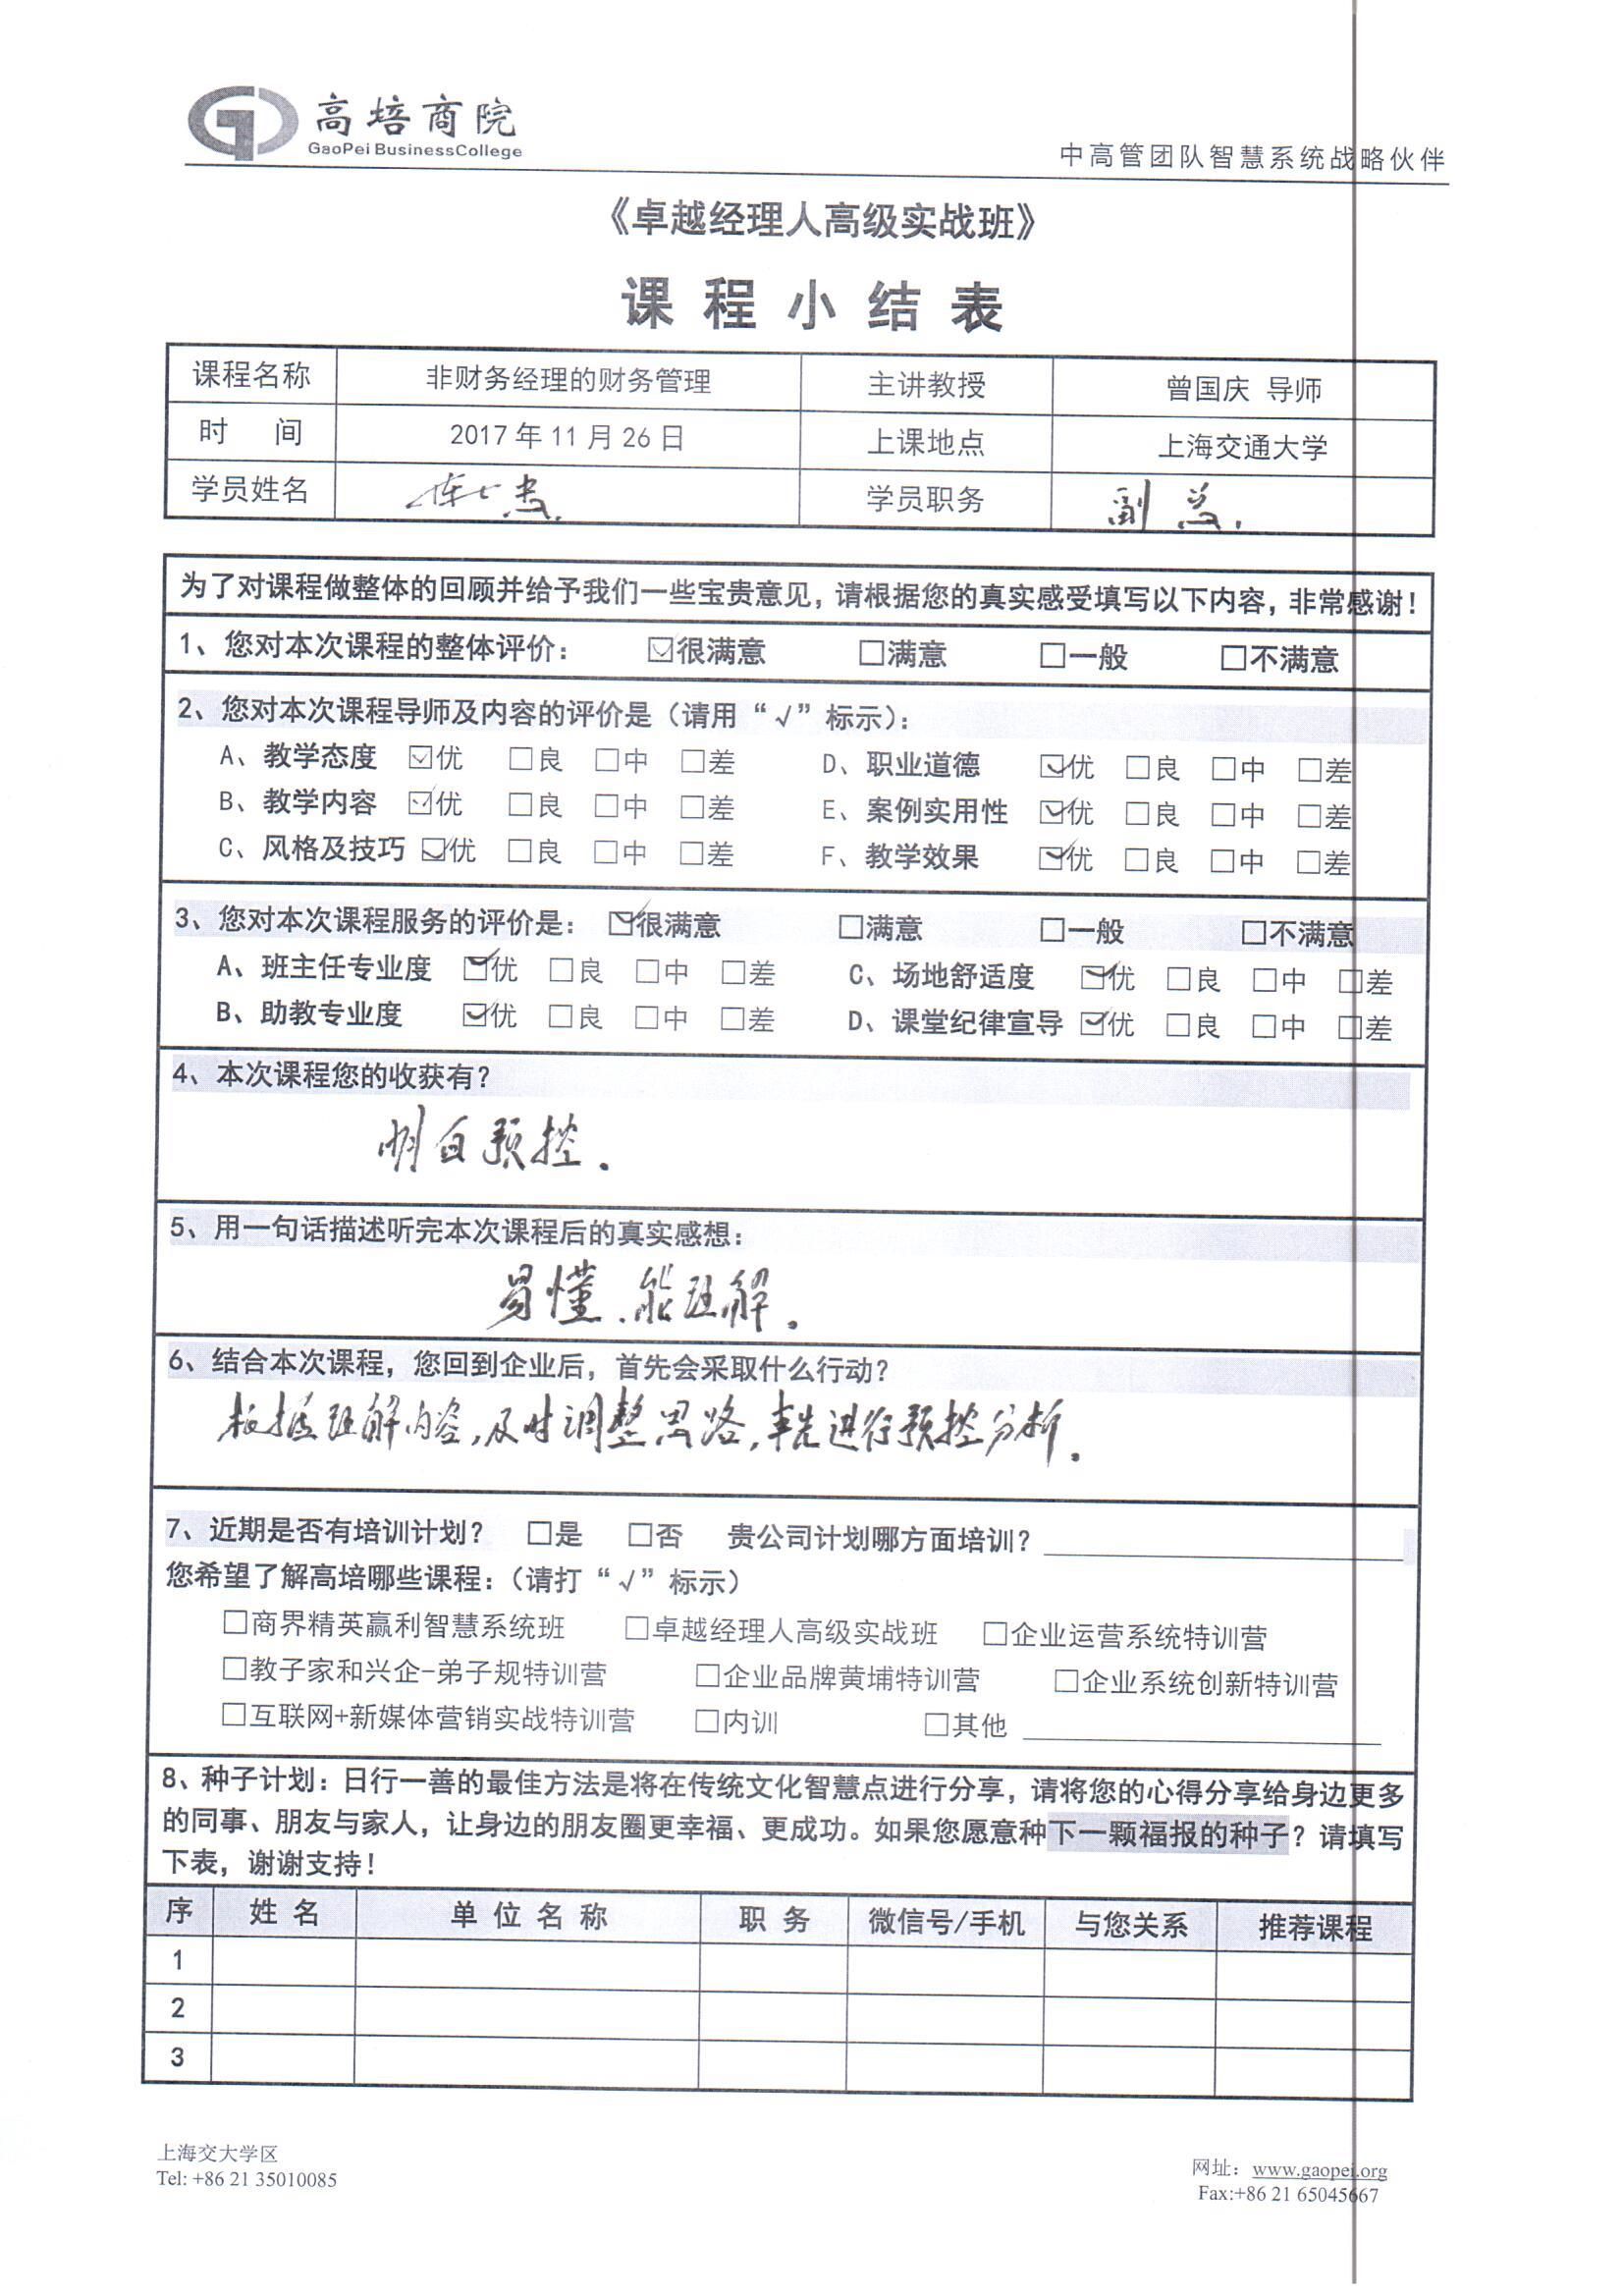 高培商院
GaoPei BusinessCollege
中高管团队智慧系统战略伙伴
《卓越经理人高级实战班》
课程小结表
课程名称 非财务经理的财务管理 主讲教授 曾国庆 导师
时 间 2017年11月26日 上课地点 上海交通大学
学员姓名 学员职务 副总.
为了对课程做整体的回顾并给予我们一些宝贵意见，请根据您的真实感受填写以下内容，非常感谢！
1、您对本次课程的整体评价： ☑很满意 □满意 □一般 □不满意
2、您对本次课程导师及内容的评价是（请用“√”标示）：
A、教学态度 ☑优 □良 □中 □差 D、职业道德 ☑优 □良 □中 □差
B、教学内容 ☑优 □良 □中 □差 E、案例实用性 ☑优 □良 □中 □差
C、风格及技巧 ☑优 □良 □中 □差 F、教学效果 ☑优 □良 □中 □差
3、您对本次课程服务的评价是： ☑很满意 □满意 □一般 □不满意
A、班主任专业度 ☑优 □良 □中 □差 C、场地舒适度 ☑优 □良 □中 □差
B、助教专业度 ☑优 □良 □中 □差 D、课堂纪律宣导 ☑优 □良 □中 □差
4、本次课程您的收获有？
明白预控.
5、用一句话描述听完本次课程后的真实感想：
易懂.能理解.
6、结合本次课程，您回到企业后，首先会采取什么行动？
根据理解内容,及时调整思路,率先进行预控分析.
7、近期是否有培训计划？ □是 □否 贵公司计划哪方面培训？
您希望了解高培哪些课程：（请打“√”标示）
□商界精英赢利智慧系统班 □卓越经理人高级实战班 □企业运营系统特训营
□教子家和兴企-弟子规特训营 □企业品牌黄埔特训营 □企业系统创新特训营
□互联网+新媒体营销实战特训营 □内训 □其他
8、种子计划：日行一善的最佳方法是将在传统文化智慧点进行分享，请将您的心得分享给身边更多
的同事、朋友与家人，让身边的朋友圈更幸福、更成功。如果您愿意种下一颗福报的种子？请填写
下表，谢谢支持！
序 姓名 单位名称 职务 微信号/手机 与您关系 推荐课程
1
2
3
上海交大学区
Tel: +86 21 35010085
网址：www.gaopei.org
Fax:+86 21 65045667